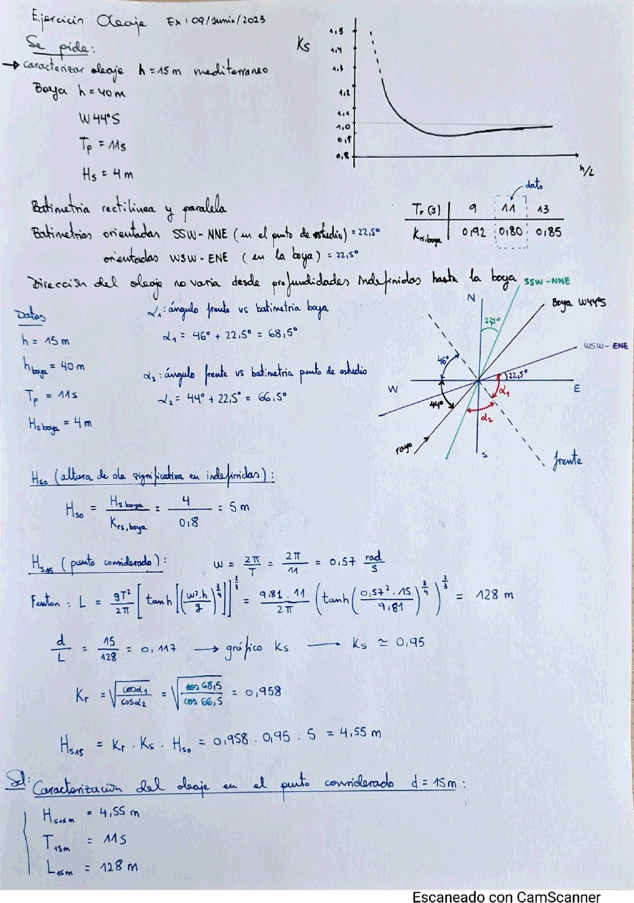 Ejercicio Oleaje Ex: 09/Junio/2023
Se pide:
→ caracterizar oleaje h = 15 m mediterraneo
Boya h = 40 m
W44°S
Tp = 11s
Hs = 4 m
Ks
1,5
1,4
1,2
1,1
1,0
0,9
0,8
h/L
dato
Tp (s) 9 11 13
Krs,boya 0,92 0,80 0,85
Batimetria rectilinea y paralela
Batimetrias orientadas SSW-NNE (en el punto de estudio) = 22,5°
orientadas WSW-ENE (en la boya) = 22,5°
Dirección del oleaje no varia desde profundidades Indefinidas hasta la boya
Datos
h = 15 m
h boya = 40 m
Tp = 11s
Hs boya = 4 m
α₁: ángulo frente vs batimetria boya
α₁ = 46° + 22,5° = 68,5°
α₂: ángulo frente vs batimetria punto de estudio
α₂ = 44° + 22,5° = 66,5°
SSW-NNE
N
Boya W44°S
22,5°
WSW-ENE
46°
22,5°
W
E
α₁
44°
α₂
rayo
S
frente
Hso (altura de ola significativa en indefinidas):
Hso = Hs boya / Krs,boya = 4 / 0,8 = 5 m
Hs15 (punto considerado): w = 2π/T = 2π/11 = 0,57 rad/s
Fenton: L = gT²/2π [tanh[(w²·h/g)^(3/4)]]^(2/3) = 9,81·11/2π (tanh(0,57²·15/9,81)^(3/4))^(2/3) = 128 m
d/L = 15/128 = 0,117 → gráfico Ks → Ks ≃ 0,95
Kr = √(cosα1/cosα2) = √(cos 68,5/cos 66,5) = 0,958
Hs15 = Kr · Ks · Hso = 0,958 · 0,95 · 5 = 4,55 m
Sol: Caracterización del oleaje en el punto considerado d = 15m:
Hs15m = 4,55 m
T15m = 11s
L15m = 128 m
Escaneado con CamScanner